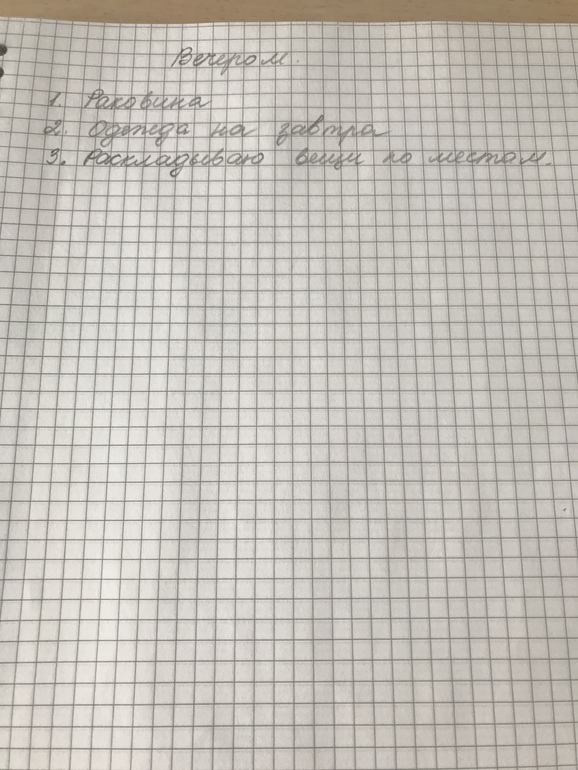 Вечером.
1. Раковина
2. Одежда на завтра
3. Раскладываю вещи по местам.